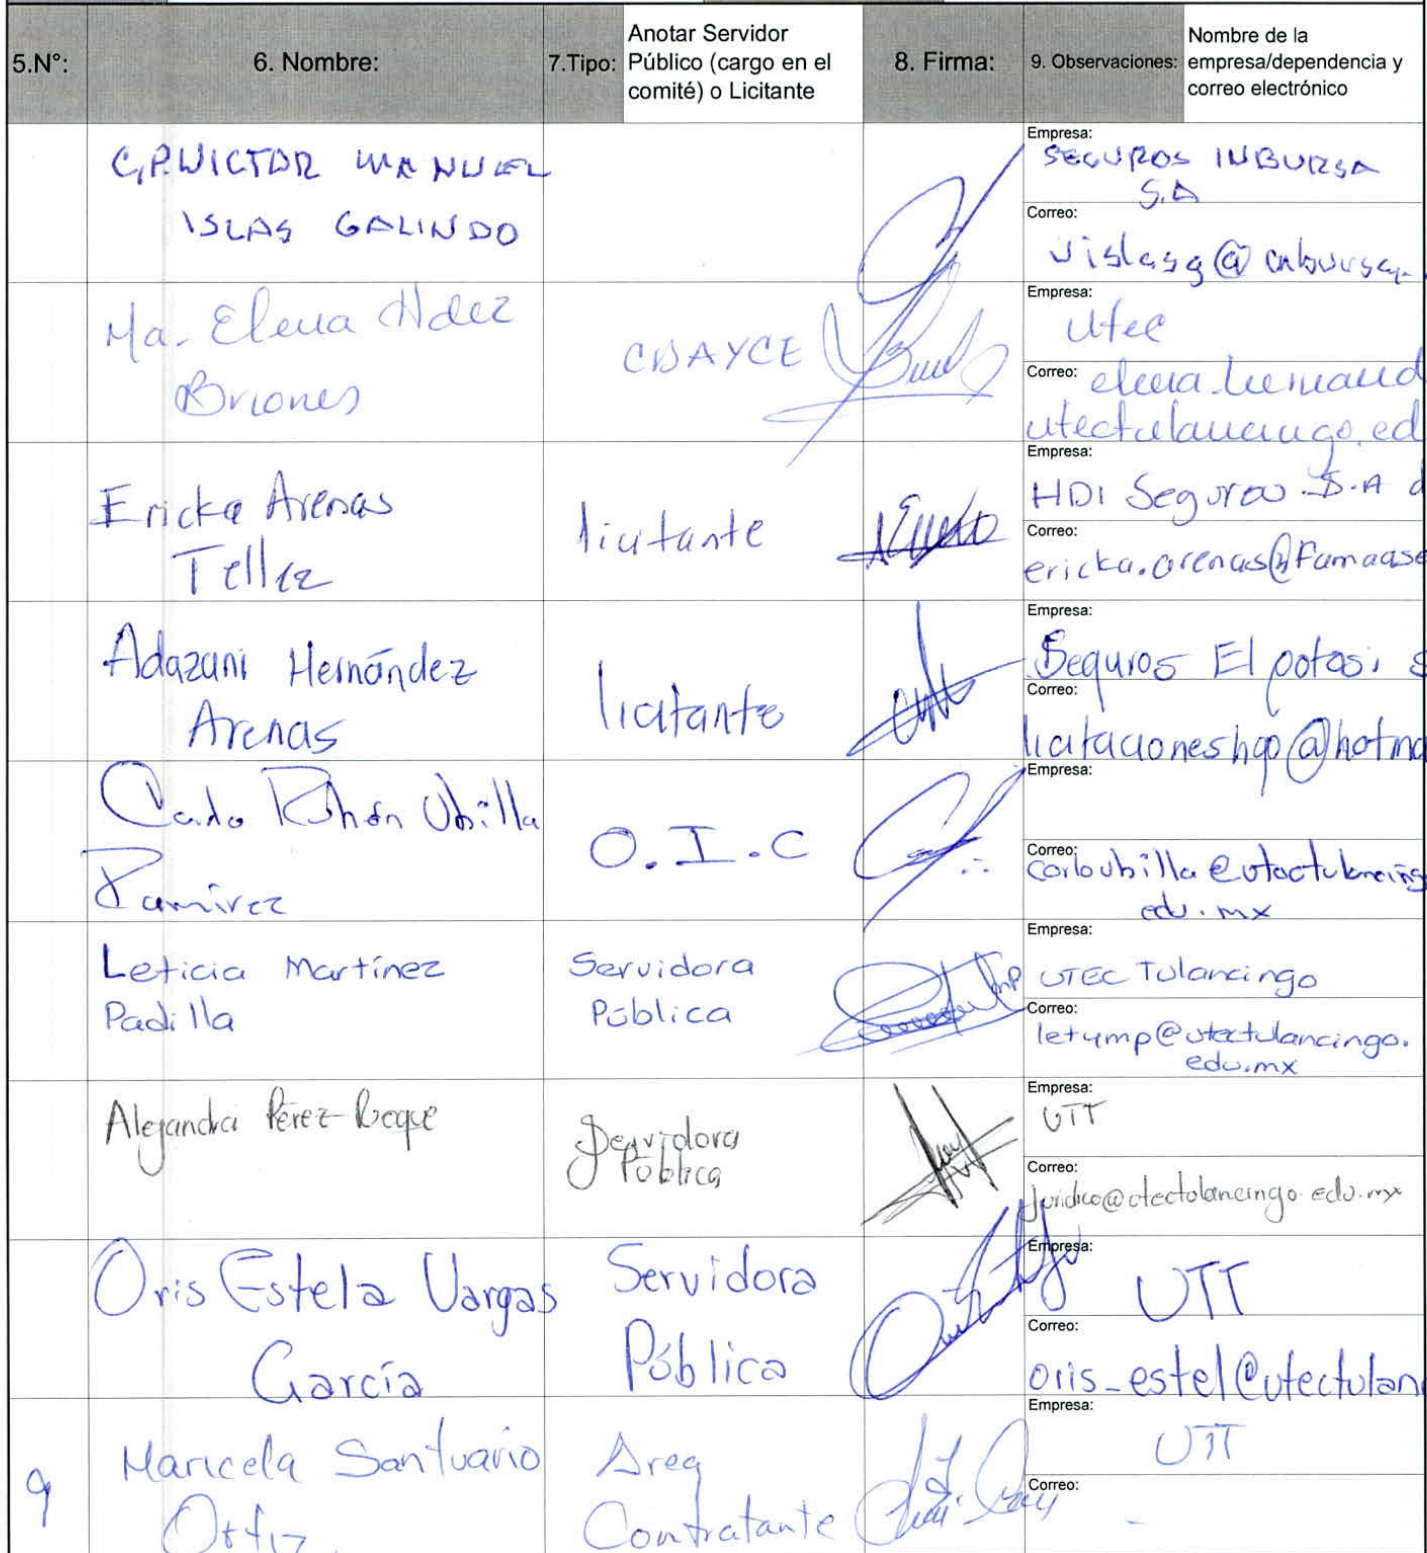 5.N°:
6. Nombre:
7.Tipo:
Anotar Servidor
Público (cargo en el
comité) o Licitante
8. Firma:
9. Observaciones:
Nombre de la
empresa/dependencia y
correo electrónico
C.P. VICTOR MANUEL
ISLAS GALINDO
Empresa:
SEGUROS INBURSA
S.A
Correo:
vislasg@inbursa.
Ma. Elena Hdez
Briones
CAAYCE
Empresa:
Utec
Correo:
elena.hernand
utectulancingo.ed
Ericka Arenas
Tellez
licitante
Empresa:
HDI Seguros S.A d
Correo:
ericka.arenas@Famaase
Adazuni Hernández
Arenas
licitante
Empresa:
Seguros El potosi S
Correo:
licitacioneshgo@hotma
Carlo Ubilla
Ramirez
O.I.C
Empresa:
Correo:
carloubilla@utectulancing
edu.mx
Leticia Martínez
Padilla
Servidora
Pública
Empresa:
UTEC Tulancingo
Correo:
letymp@utectulancingo.
edu.mx
Alejandra Pérez Roque
Servidora
Pública
Empresa:
UTT
Correo:
juridico@utectulancingo.edu.mx
Oris Estela Vargas
García
Servidora
Pública
Empresa:
UTT
Correo:
oris_estel@utectulan
9
Maricela Santuario
Ortiz
Area
Contratante
Empresa:
UTT
Correo:
-